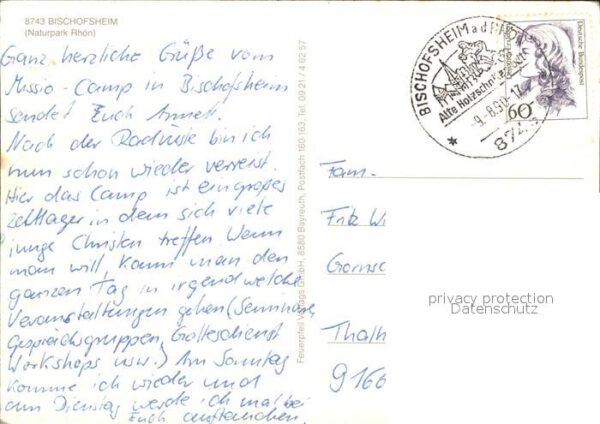 8743 BISCHOFSHEIM
(Naturpark Rhön)
Ganz herzliche Grüße vom
Missio-Camp in Bischofsheim
sendet Euch Annett.
Nach der Radtour bin ich
nun schon wieder verreist.
Hier das Camp ist ein großes
Zeltlager in dem sich viele
junge Christen treffen. Wenn
man will, kann man den
ganzen Tag in irgendwelche
Veranstaltungen gehen (Seminare,
Gesprächsgruppen, Gottesdienst
Workshops usw.) Am Sonntag
komme ich wieder und
am Dienstag werde ich mal bei
Euch auftauchen.
Feuerpfeil Verlags GmbH, 8580 Bayreuth, Postfach 160 163, Tel. 09 21 / 4 62 57
BISCHOFSHEIM a d RHÖN
Alte Holzschnitzer
-9.-8.90-17
874
Deutsche Bundespost
60
Fam.
Fritz Wi
Gornsc
Thath
9166
privacy protection
Datenschutz